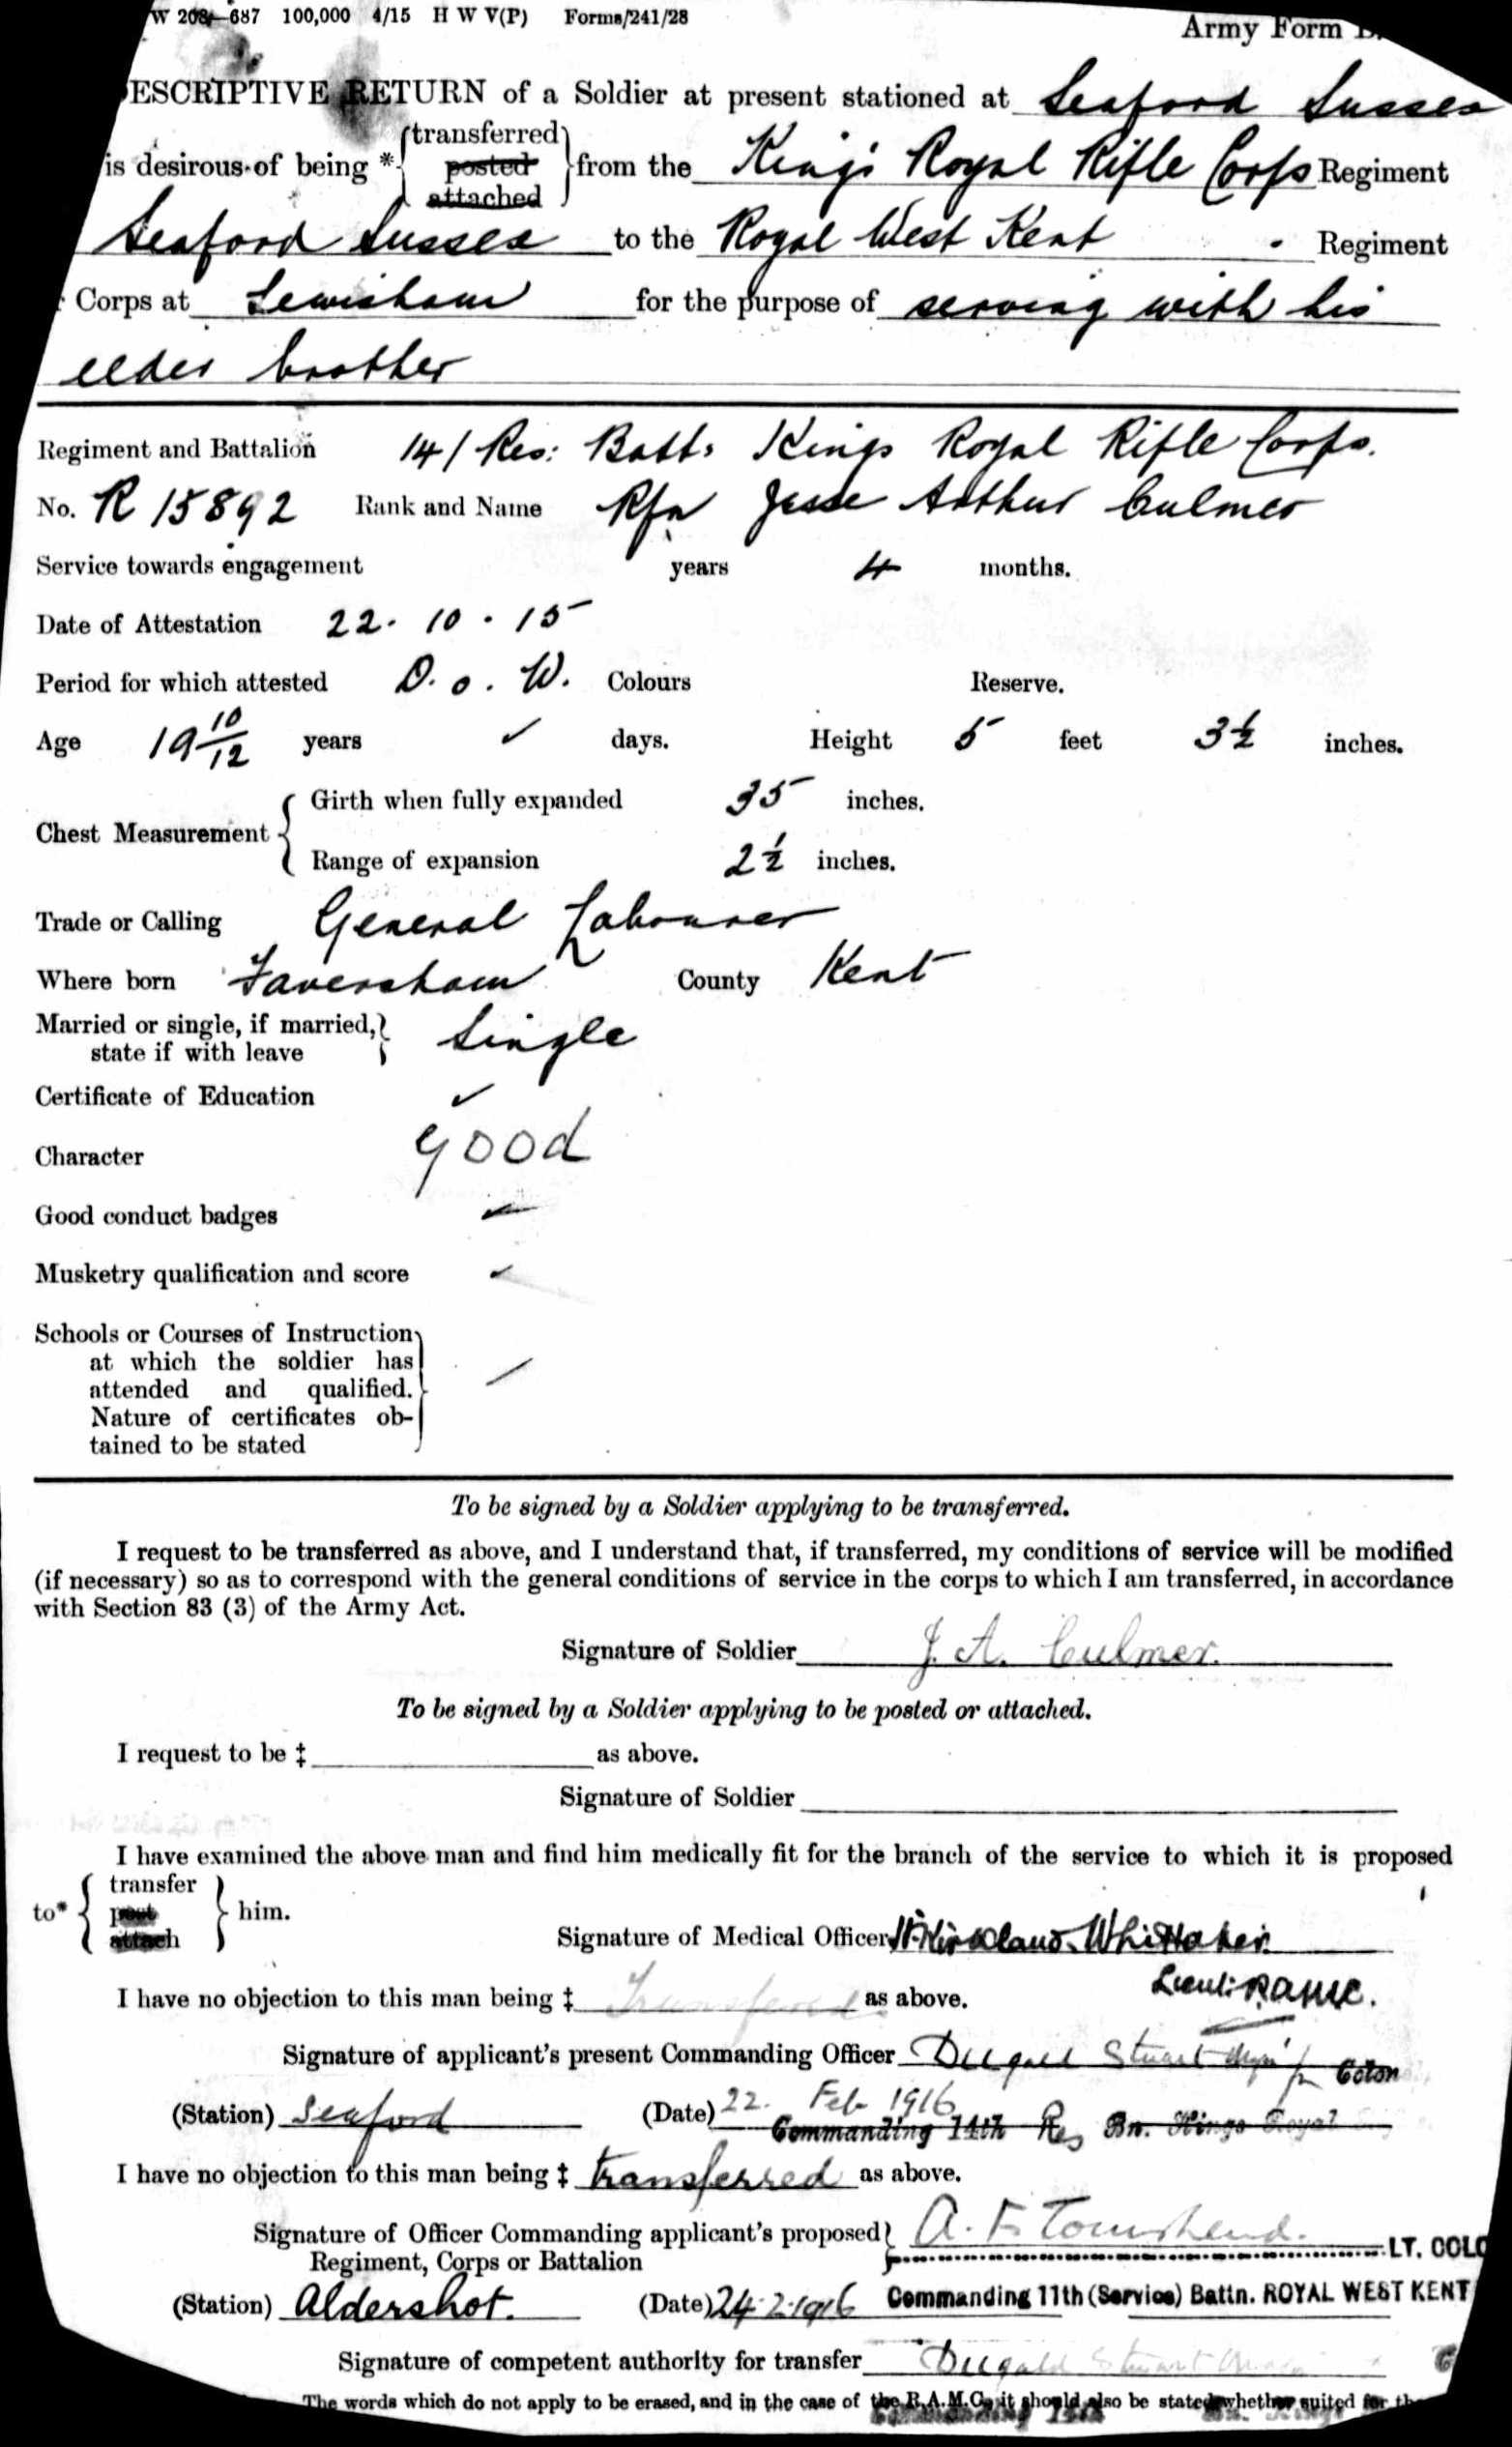 W 208—687 100,000 4/15 H W V(P) Forms/241/28
Army Form
ESCRIPTIVE RETURN of a Soldier at present stationed at Seaford Sussex
is desirous of being * { transferred posted attached } from the Kings Royal Rifle Corps Regiment
Seaford Sussex to the Royal West Kent . Regiment
Corps at Lewisham for the purpose of serving with his
elder brother
Regiment and Battalion 14/Res: Batt: Kings Royal Rifle Corps.
No. R 15892 Rank and Name Rfn Jesse Arthur Culmer
Service towards engagement years 4 months.
Date of Attestation 22. 10 . 15
Period for which attested D. o. W. Colours Reserve.
Age 19 10/12 years ✓ days. Height 5 feet 3½ inches.
Chest Measurement { Girth when fully expanded 35 inches.
Range of expansion 2½ inches.
Trade or Calling General Labourer
Where born Faversham County Kent
Married or single, if married, } Single
state if with leave
Certificate of Education ✓
Character good
Good conduct badges
Musketry qualification and score
Schools or Courses of Instruction
at which the soldier has
attended and qualified.
Nature of certificates ob-
tained to be stated
To be signed by a Soldier applying to be transferred.
I request to be transferred as above, and I understand that, if transferred, my conditions of service will be modified
(if necessary) so as to correspond with the general conditions of service in the corps to which I am transferred, in accordance
with Section 83 (3) of the Army Act.
Signature of Soldier J. A. Culmer.
To be signed by a Soldier applying to be posted or attached.
I request to be ‡ as above.
Signature of Soldier
I have examined the above man and find him medically fit for the branch of the service to which it is proposed
to* { transfer post attach } him.
Signature of Medical Officer Whittaker
Lieut: RAMC.
I have no objection to this man being ‡ Transferred as above.
Signature of applicant's present Commanding Officer Dugald Stuart
(Station) Seaford (Date) 22. Feb 1916
Commanding 14th Res Bn. Kings Royal
I have no objection to this man being ‡ transferred as above.
Signature of Officer Commanding applicant's proposed } A. F. Townshend. LT. COLO
Regiment, Corps or Battalion
(Station) Aldershot. (Date) 24.2.1916 Commanding 11th (Service) Battn. ROYAL WEST KENT
Signature of competent authority for transfer Dugald Stuart
The words which do not apply to be erased, and in the case of the R.A.M.C. it should also be stated whether suited for th